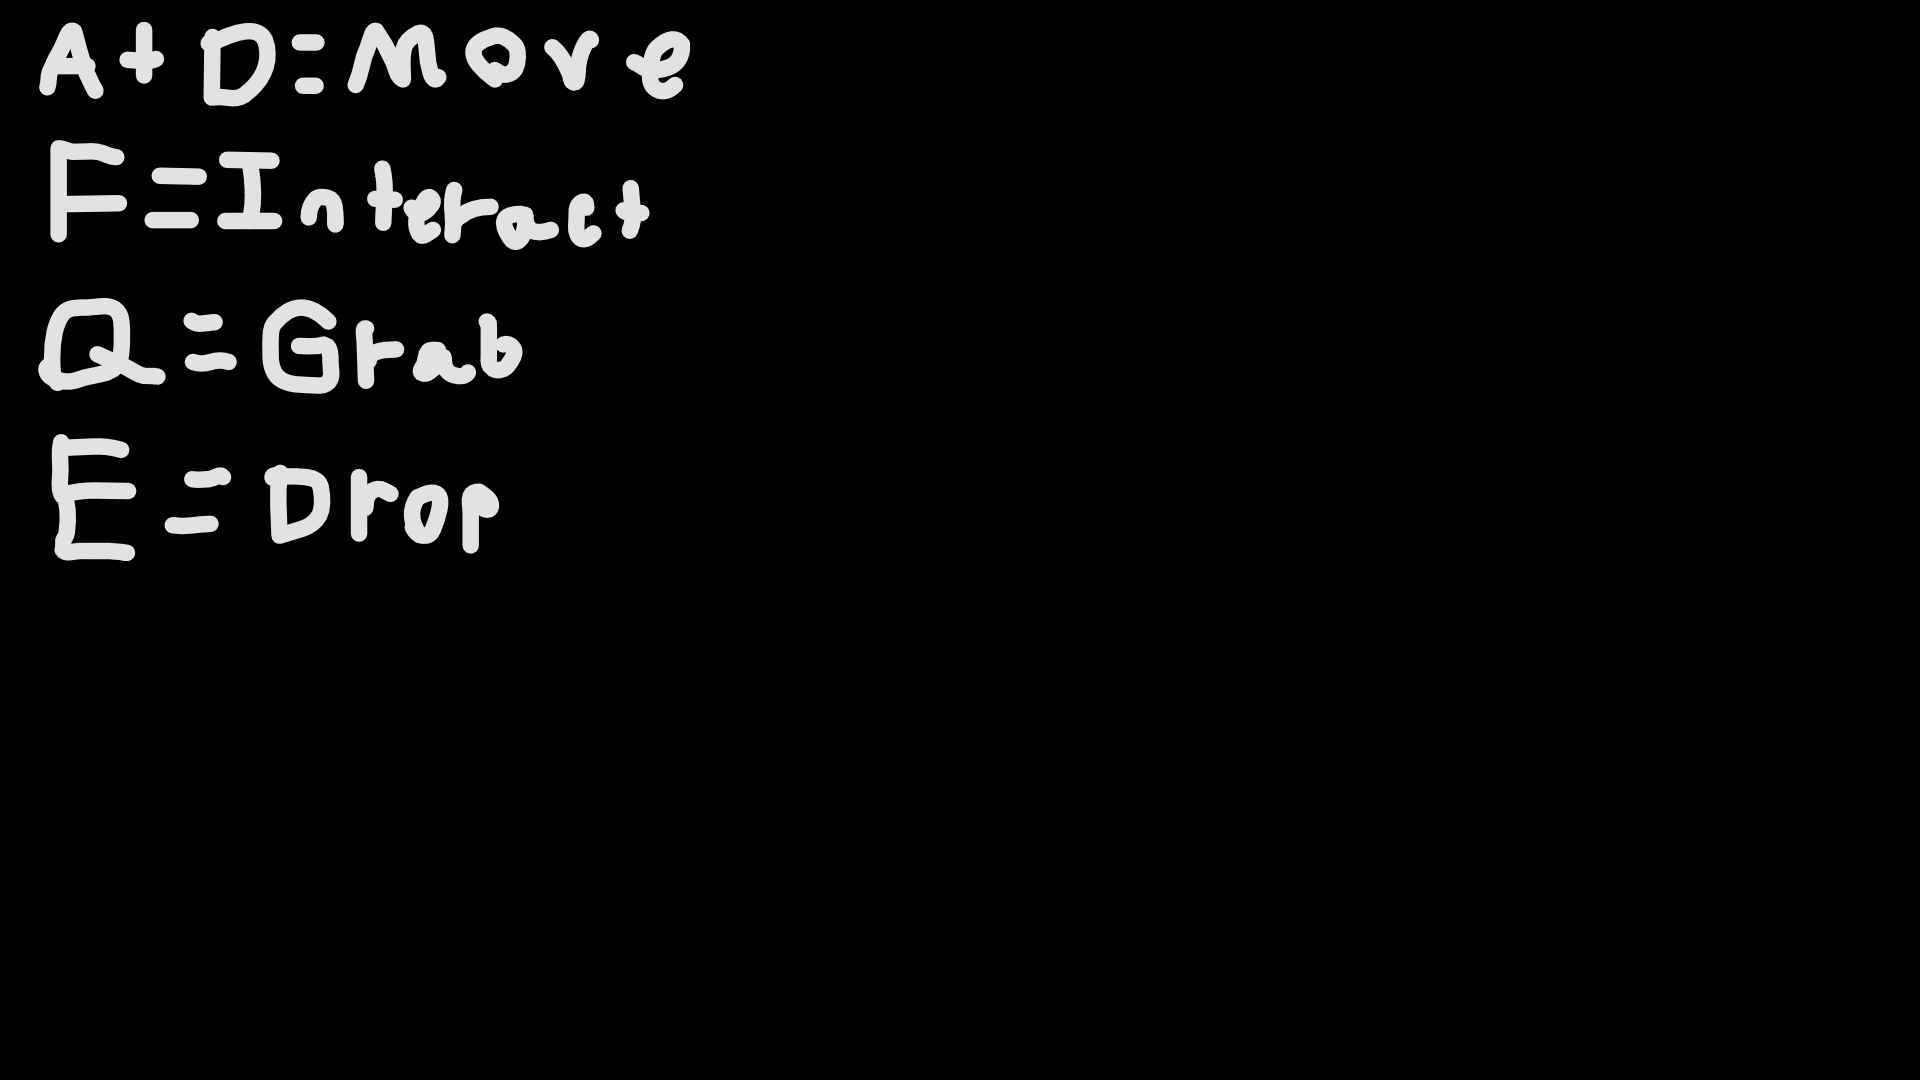 A+D=Move
F=Interact
Q=Grab
E=Drop